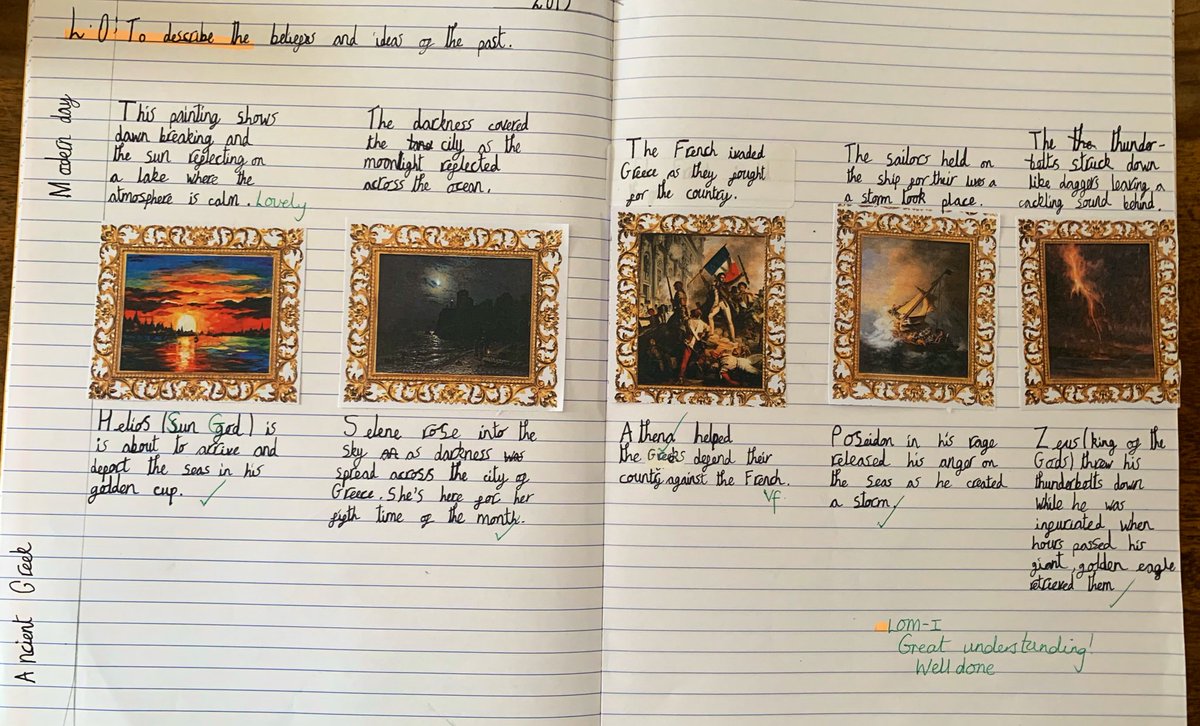 2019
L.O: To describe the beliefs and ideas of the past.
Modern day
This painting shows
dawn breaking and
the sun reflecting on
a lake where the
atmosphere is calm. Lovely
The darkness covered
the city as the
moonlight reflected
across the ocean.
The French ivaded
Greece as they fought
for the country.
The sailors held on
the ship for their lives a
a storm took place.
The thunder-
bolts struck down
like daggers leaving a
cackling sound behind.
Ancient Greek
Helios (Sun God) is
is about to arrive and
depart the seas in his
golden cup.
Selene rose into the
sky as darkness was
spread across the city of
Greece. She's here for her
fifth time of the month.
Athena helped
the Greeks defend their
county against the French.
Vf
Poseidon in his rage
released his anger on
the seas as he created
a storm.
Zeus (king of the
Gods) threw his
thunderbolts down
while he was
infuriated when
hours passed his
giant, golden eagle
retrieved them
LOM-I
Great understanding!
Well done